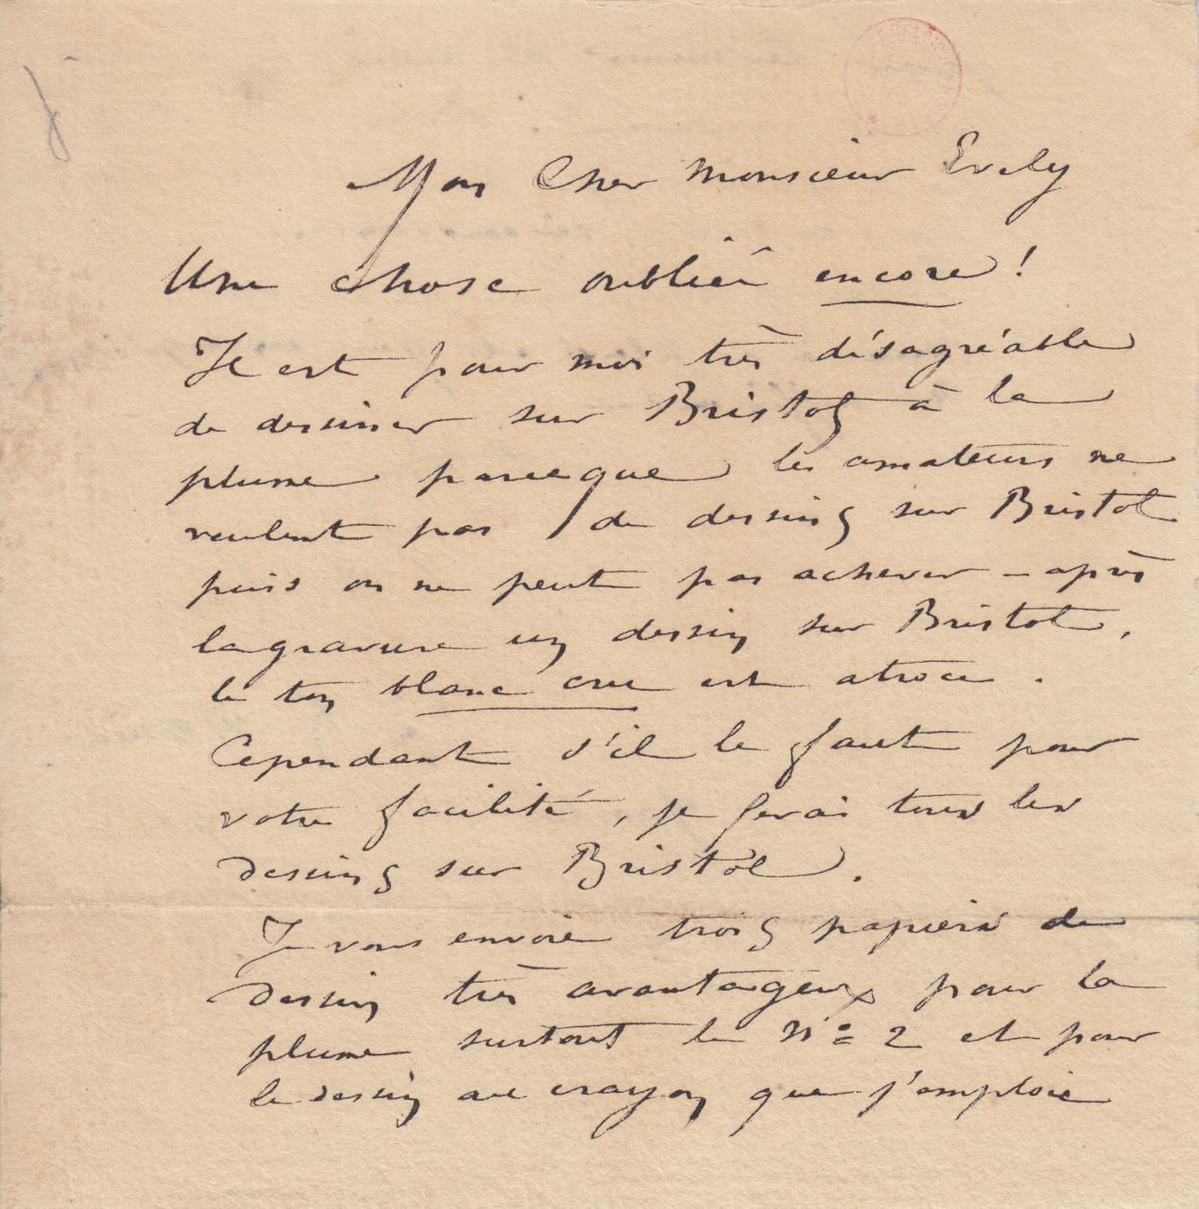 Mon Cher Monsieur Evely
Une chose oubliée encore !
Il est pour moi très désagréable
de dessiner sur Bristol à la
plume parceque les amateurs ne
veulent pas de dessins sur Bristol
puis on ne peut pas achever - après
la gravure un dessin sur Bristol,
le ton blanc cru est atroce .
Cependant s'il le faut pour
votre facilité, je ferai tous les
dessins sur Bristol.
Je vous envoie trois papiers de
dessin très avantageux pour la
plume surtout le No 2 et pour
le dessin au crayon que j'emploie